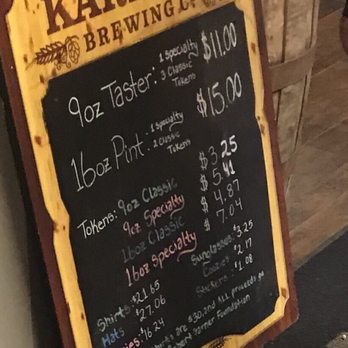 BREWING C
9oz Taster: 1 Specialty 3 Classic Tokens $11.00
16oz Pint: 1 Specialty 2 Classic Tokens $15.00
Tokens: 9oz Classic $3.25
9oz Specialty $5.41
16oz Classic $4.87
16oz Specialty $7.04
Shirts $21.65 Sunglasses: $3.25
Hats $27.06 Coozies: $2.17
$16.24 Stickers: $1.08
are $30, and ALL proceeds go
Foundation